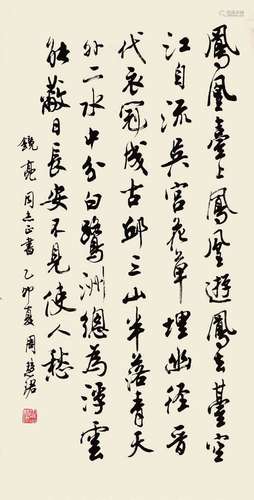 鳳凰臺上鳳凰遊鳳去臺空
江自流吳宮花草埋幽徑晉
代衣冠成古邱三山半落青天
外二水中分白鷺洲總為浮雲
能蔽日長安不見使人愁
鏡亮同志正書乙卯夏周慧珺